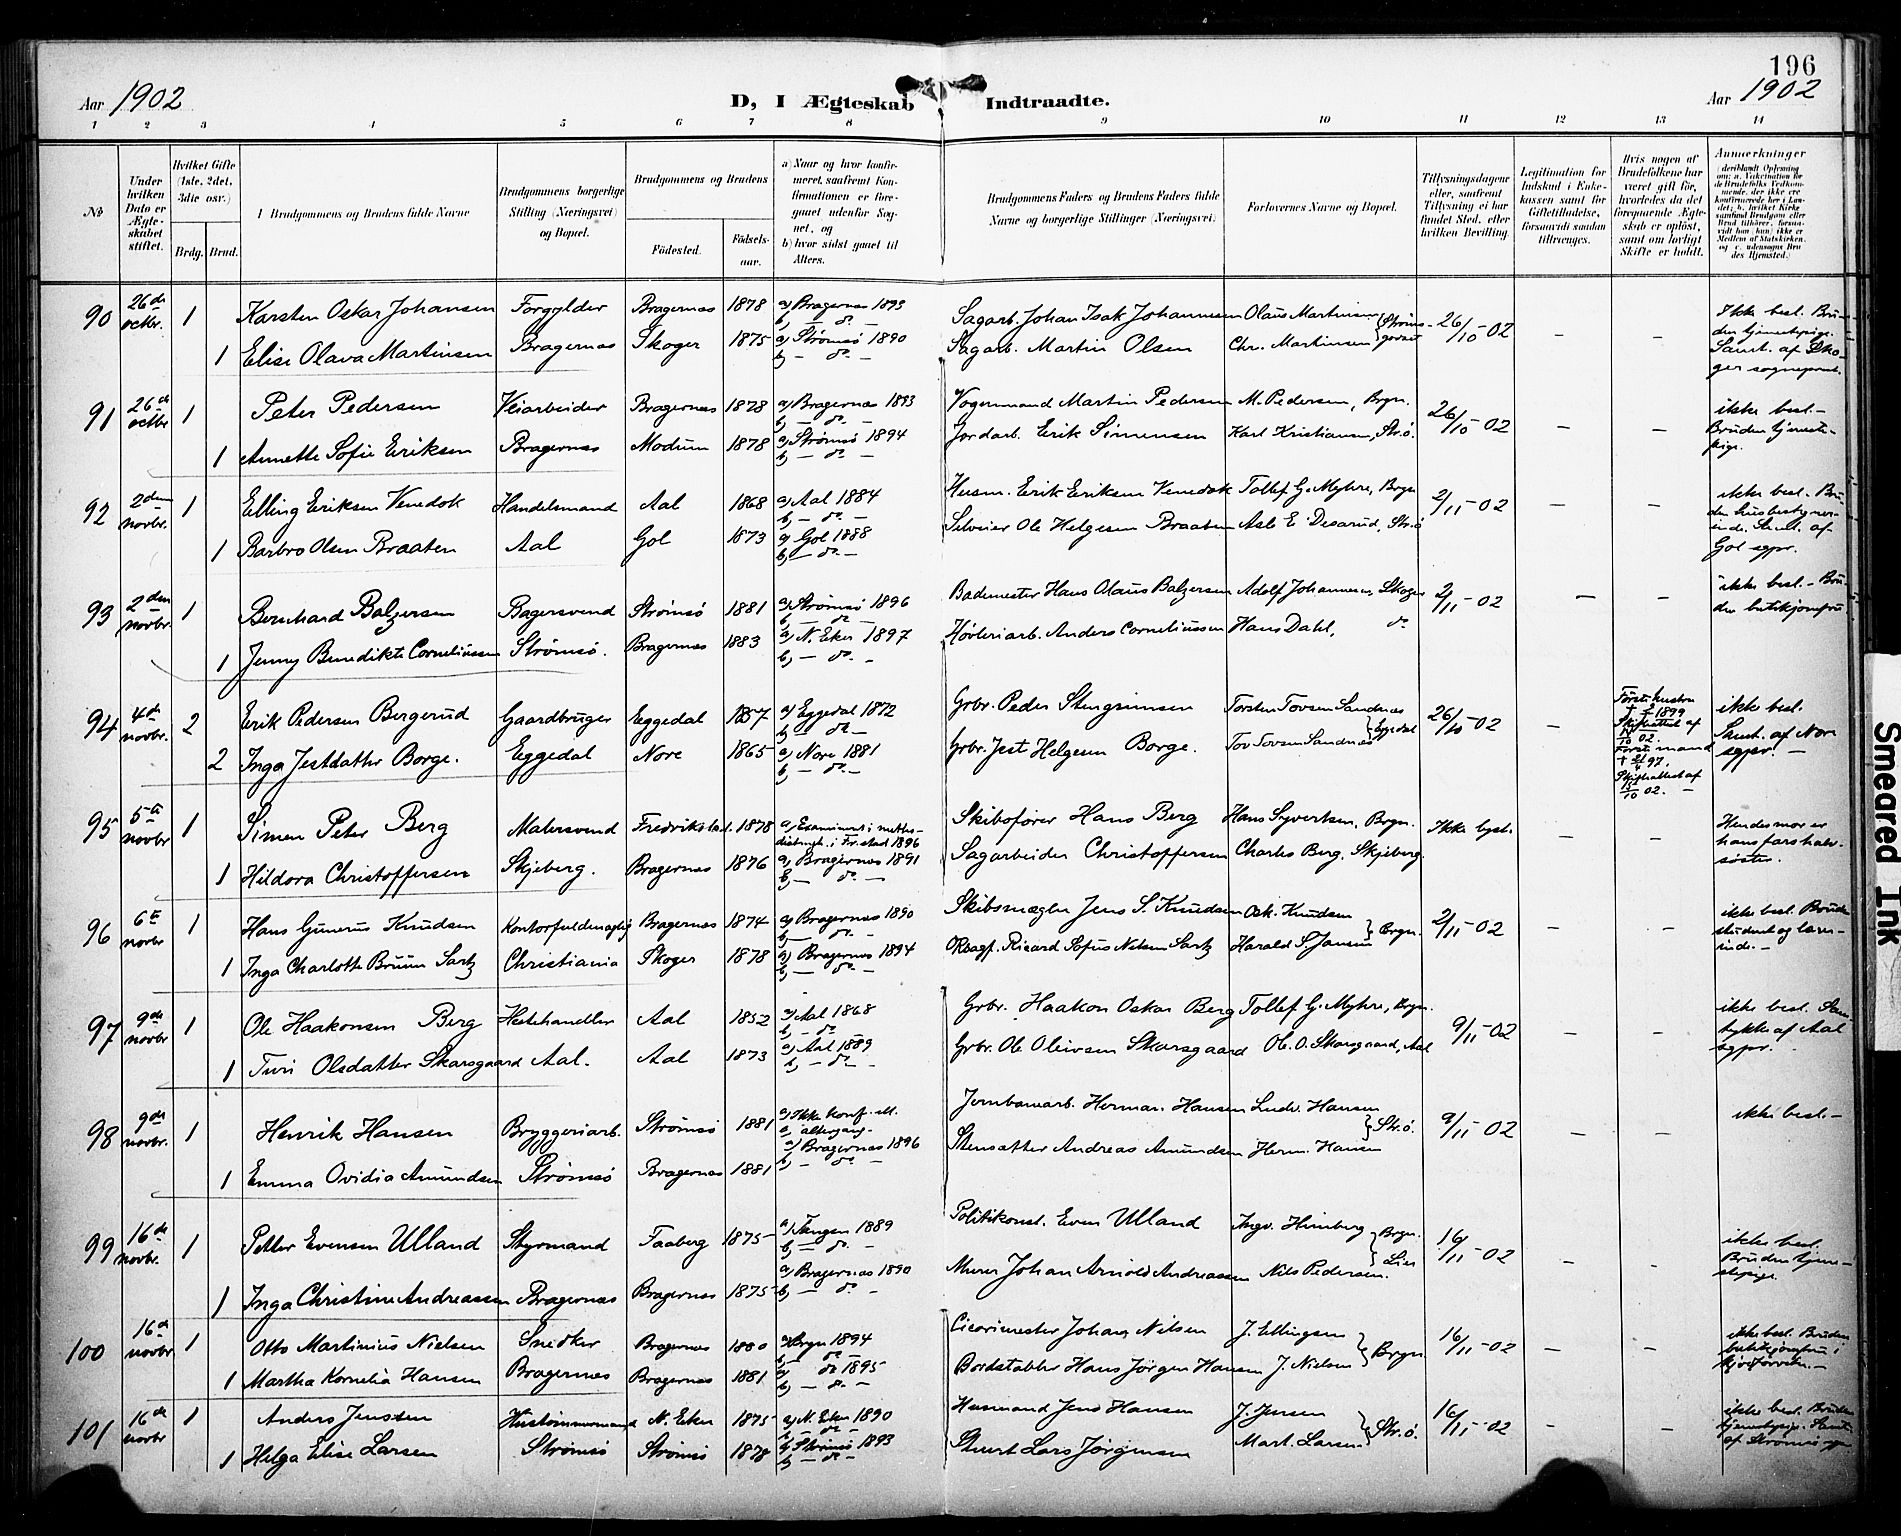 196
Aar 1902
D, I Ægteskab Indtraadte.
Aar 1902
1 2 3 4 5 6 7 8 9 10 11 12 13 14
No
Under hvilken Dato er Ægteskabet stiftet.
Hvilket Gifte (1ste, 2det, 3die osv.)
Brdg. Brud.
1 Brudgommens og Brudens fulde Navne
Brudgommens borgerlige Stilling (Næringsvei) og Bopæl.
Brudgommens og Brudens
Födested. Födselsaar.
a) Naar og hvor konfirmeret, saafremt Konfirmationen er foregaaet udenfor Sognet, og
b) hvor sidst gaaet til Alters.
Brudgommens Faders og Brudens Faders fulde Navne og borgerlige Stillinger (Næringsvei)
Forlovernes Navne og Bopæl.
Tillysningsdagene eller, saafremt Tillysning ei har fundet Sted, efter hvilken Bevilling.
Legitimation for Indskud i Enkekassen samt for Giftetilladelse, forsaavidt saadan tiltrænges.
Hvis nogen af Brudefolkene har været gift för, hvorledes da det foregaaende Ægteskab er oplöst, samt om lovligt Skifte er holdt.
Anmerkninger
90 26de octbr. 1 Karsten Oskar Johansen Forgylder Bragernes 1878 a) Bragernes 1893 b) — do — Sagarb. Johan Isak Johannesen Olaus Martinsen 26/10-02 — — Ikke besl. Bruden tjenestepige. Samt. af Skoger sogneprest.
1 Elise Olava Martinsen Bragernes Skoger 1875 a) Strømsø 1890 b) — do — Sagarb. Martin Olsen Chr. Martinsen
91 26de octbr 1 Peter Pedersen Veiarbeider Bragernes 1878 a) Bragernes 1893 b) — do — Vognmand Martin Pedersen M. Pedersen, Brgn. 26/10-02 — — ikke besl. — Bruden tjenestepige.
1 Annette Sofie Eriksen Bragernes Modum 1878 a) Strømsø 1894 b) — do — Jordarb. Erik Simensen Karl Kristiansen, Strø.
92 2den novbr. 1 Elling Eriksen Venedok Handelsmand Aal 1868 a) Aal 1884 b) — do — Husm. Erik Eriksen Venedok Tollef G. Myhre, Brgn 2/11-02 — — ikke besl. Bruden husbestyrerinde. Samt. af Gol sgpr.
1 Barbro Olsen Braaten Aal Gol 1873 a) Gol 1888 b) — do — Selveier Ole Helgesen Braaten Asle E. Desarud, Strø
93 2den novbr. 1 Bernhard Balzersen Bagersvend Strømsö 1881 a) Strømsø 1896 b) — do — Bademester Hans Olaus Balzersen Adolf Johannesen, Skoger 2/11-02 — — ikke besl. — Bruden butikjomfru
1 Jenny Benedikte Corneliussen Strømsø. Bragernes 1883 a) N. Eker 1897 b) — do — Høvleriarb. Anders Corneliussen Hans Dahl, do
94 4de novbr. 2 Erik Pedersen Bergerud Gaardbruger Eggedal 1857 a) Eggedal 1872 b) — do — Grbr. Peder Stengrimsen Torsten Tovsen Sandnes 26/10-02 — Første hustru † 1899 Skifteattest af 02. Første mand † 97. Skifteattest af 15/10 02. — ikke besl. Samt. af Nore sgpr. —
2 Inga Jestdatter Borge. Eggedal Nore 1865 a) Nore 1881 b) — do — Grbr. Jest Helgesen Borge. Tov Tovsen Sandnes Eggedal
95 5te novbr 1 Simen Peter Berg Malersvend Fredrikstad. 1878 Skibsfører Hans Berg Hans Syvertsen, Brgn. Ikke lyst. — — Hendes mor er hans fars halvsøster.
1 Hildora Christoffersen Skjeberg. Bragernes 1876 a) Bragernes 1891 b) — do — Sagarbeider Christoffersen Charles Berg, Skjeberg
96 6te novbr 1 Hans Gunerus Knudsen Kontorfuldmægtig Bragernes 1874 a) Bragernes 1890 b) — do — Skibsmægler Jens S. Knudsen Osk. Knudsen Brgn. 2/11-02 — — ikke besl. Bruden student og lærerinde. —
1 Inga Charlotte Bruun Sartz Christiania Skoger 1878 a) Bragernes 1894 b) — do — Ricard Sofus Nilsen Sartz Harald S. Jansen
97 9de novbr 1 Ole Haakonsen Berg Hestehandler Aal 1852 a) Aal 1868 b) — do Grbr. Haakon Oskar Berg Tollef G. Myhre, Brgn. 9/11-02 — — ikke besl. Samtykke af Aal sgpr.
1 Turi Olsdatter Skarsgaard Aal. Aal 1873 a) Aal 1889 b) — do — Grbr. Ole Olivsen Skarsgaard Ole O. Skarsgaard, Aal
98 9de novbr. 1 Henrik Hansen Bryggeriarb. Strömsö 1881 a) Ikke konf. Jernbanearb. Herman Hansen Ludv. Hansen Strø. 9/11-02 — — ikke besl. —
1 Emma Ovidia Amundsen Strømsö Bragernes 1881 a) Bragernes 1896 b) — do — Stensætter Andreas Amundsen Herm. Hansen
99 16de novbr. 1 Petter Evensen Ulland Styrmand Faaberg 1875 a) Tangen 1889 b) — do — Politikonst. Even Ulland Ingv. Himberg Brgn. 16/11-02 — — ikke besl. Bruden tjenestepige.
1 Inga Christine Andreassen Bragernes Bragernes 1875 a) Bragernes 1890 b) — do — Murer Johan Arnold Andreassen Nils Pedersen. Lier
100 16de novbr 1 Otto Martinius Nielsen Snedker Bragernes 1880 a) Brgn 1894 b) — do — Cicorimester Johan Nilsen J. Ellingsen Brgn 16/11-02 — — ikke besl. Bruden butikjomfru i
1 Martha Kornelia Hansen Bragernes Bragernes 1881 a) do 1895 b) — do — Bordstabler Hans Jørgen Hansen J. Nielsen
101 16de novbr 1 Anders Jensen Hustømmermand N. Eker 1875 a) N. Eker 1890 b) — do — Husmand Jens Hansen J. Jensen Strø. 16/11-02 — — ikke besl. Bruden tjenestepige. Samt. af Strømsø sgpr
1 Helga Elise Larsen Strømsö Strømsö 1878 a) Strømsö 1893 b) — do — Lars Jørgensen Mart. Larsen
Smeared Ink